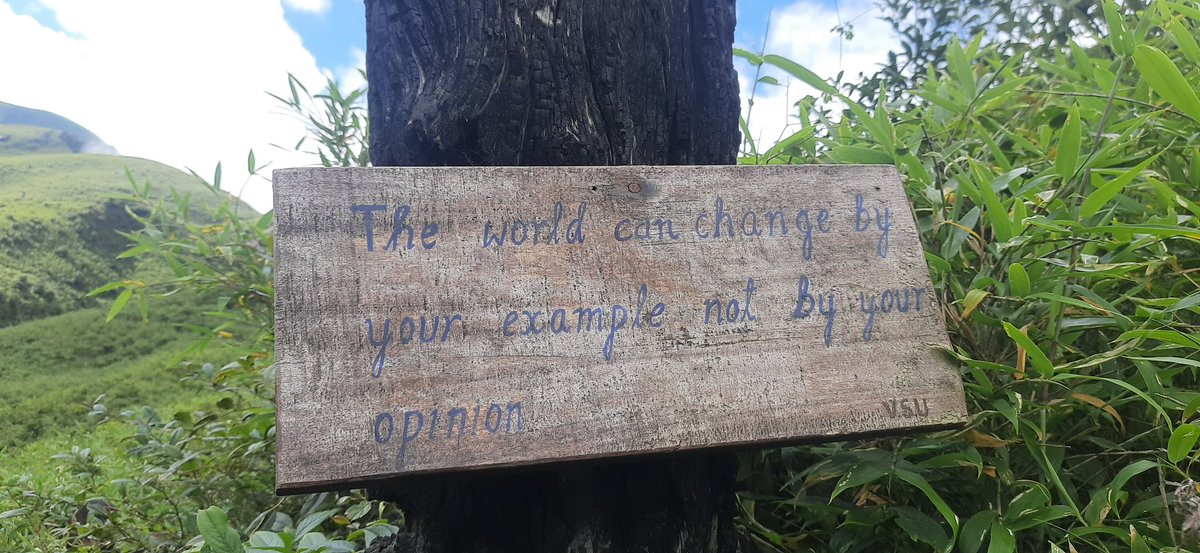 The world can change by
your example not by your
opinion
VSU